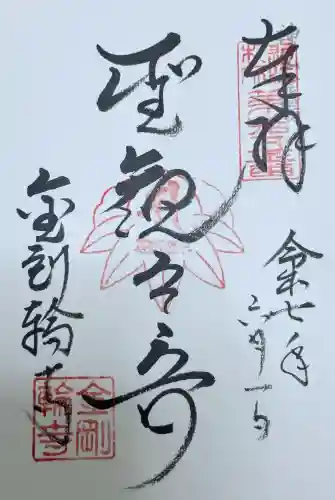 奉拝
令和七年
六月一日
聖観世音
金剛輪寺
金剛
輪寺